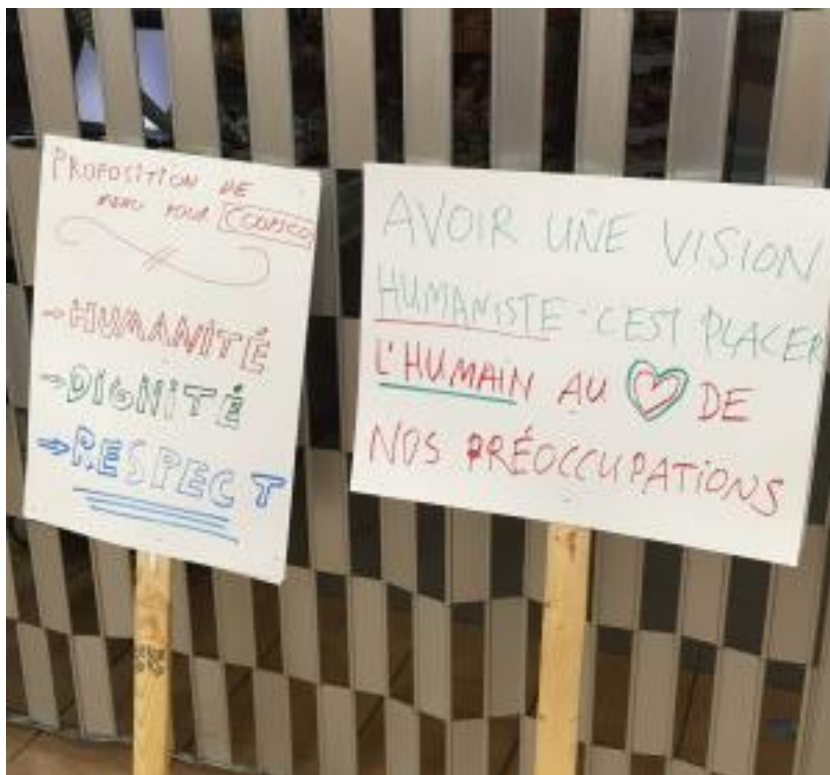 PROPOSITION DE
MENU POUR
→ HUMANITÉ
→ DIGNITÉ
→ RESPECT
AVOIR UNE VISION
HUMANISTE C'EST PLACER
L'HUMAIN AU ♥ DE
NOS PRÉOCCUPATIONS